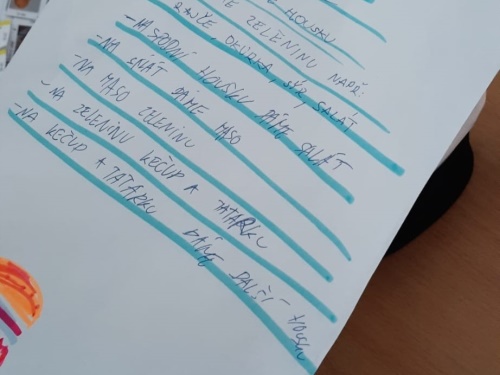 HOUSKU
ZELENINU NAPŘ:
RAJČE, OKURKA, SÝR, SALÁT
-NA SPODNÍ HOUSKU DÁME SALÁT
-NA SALÁT DÁME MASO
-NA MASO ZELENINU
-NA ZELENINU KEČUP A TATARKU
-NA KEČUP A TATARKU DÁME DALŠÍ HOUSKU